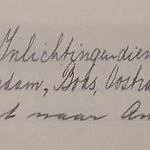 Inlichtingendien
dam, Bots, Oostra
t naar Am